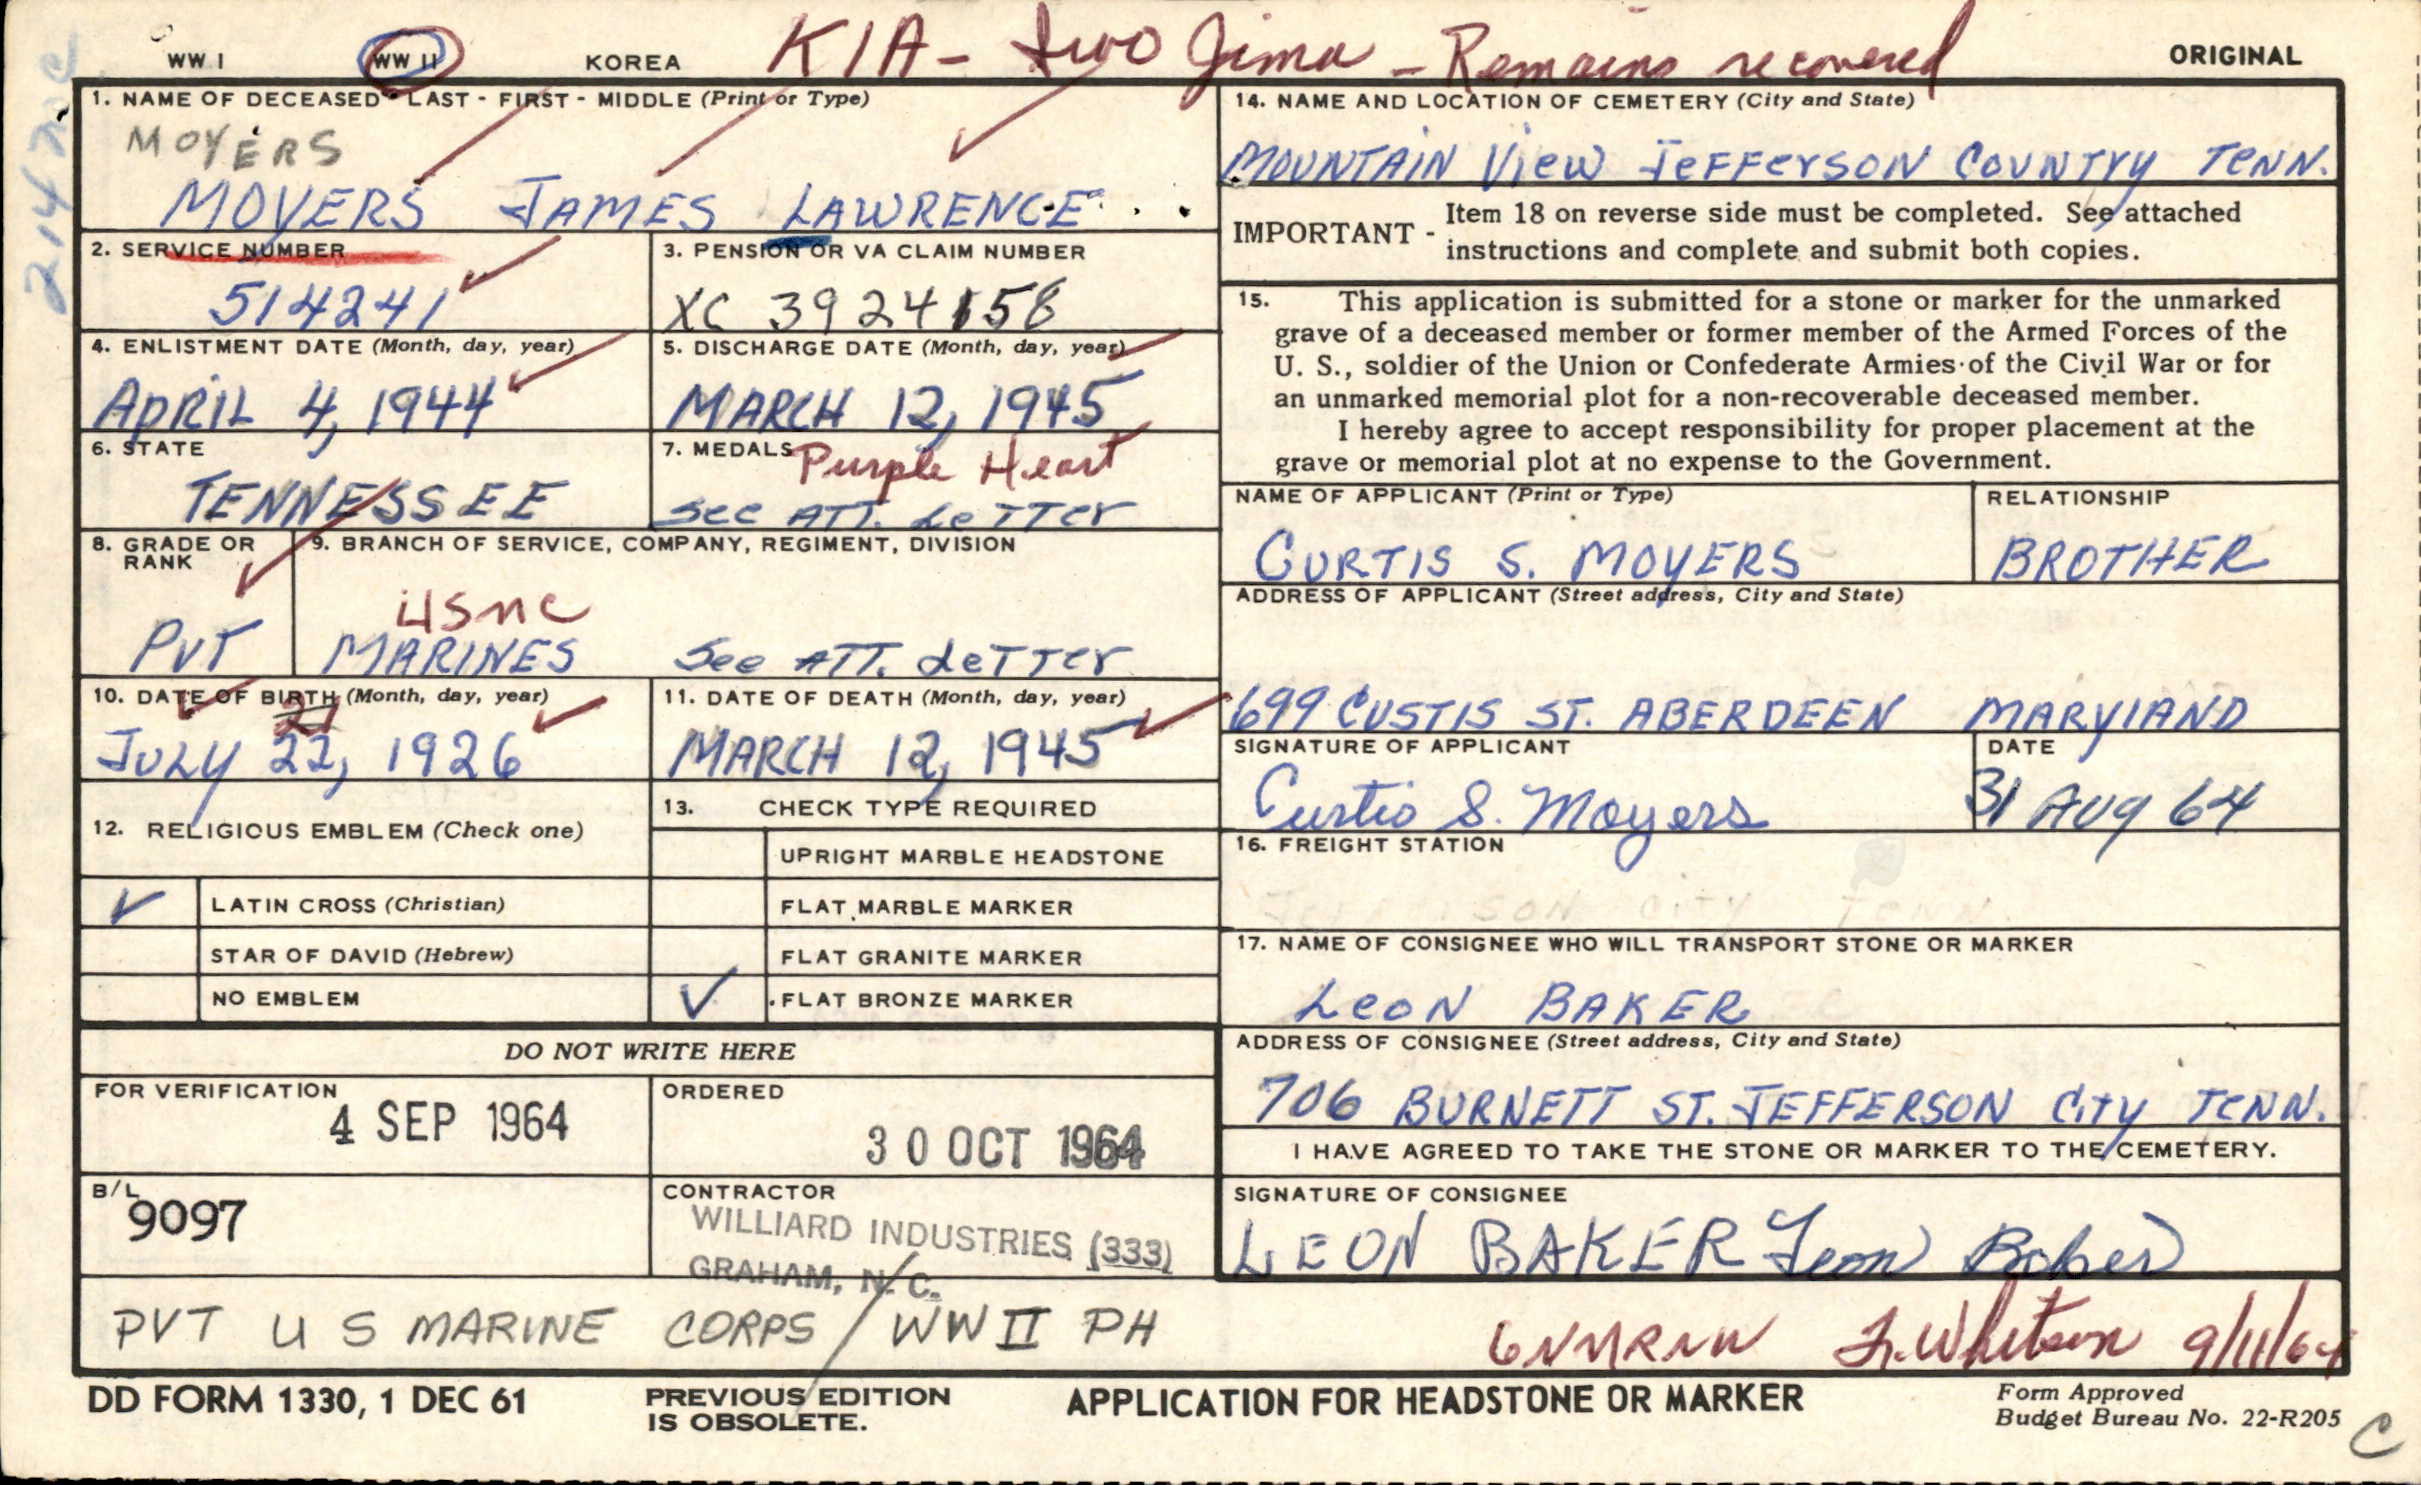 WW I WW II KOREA KIA - Iwo Jima - Remains recovered ORIGINAL
1. NAME OF DECEASED - LAST - FIRST - MIDDLE (Print or Type)
MOYERS
MOYERS JAMES LAWRENCE
2. SERVICE NUMBER
514241
3. PENSION OR VA CLAIM NUMBER
XC 3924158
4. ENLISTMENT DATE (Month, day, year)
APRIL 4, 1944
5. DISCHARGE DATE (Month, day, year)
MARCH 12, 1945
6. STATE
TENNESSEE
7. MEDALS Purple Heart
See ATT. LeTTer
8. GRADE OR
RANK
PVT
9. BRANCH OF SERVICE, COMPANY, REGIMENT, DIVISION
USMC
MARINES See ATT. LeTTer
10. DATE OF BIRTH (Month, day, year)
21
JULY 22, 1926
11. DATE OF DEATH (Month, day, year)
MARCH 12, 1945
12. RELIGIOUS EMBLEM (Check one)
✓ LATIN CROSS (Christian)
STAR OF DAVID (Hebrew)
NO EMBLEM
13. CHECK TYPE REQUIRED
UPRIGHT MARBLE HEADSTONE
FLAT MARBLE MARKER
FLAT GRANITE MARKER
✓ FLAT BRONZE MARKER
DO NOT WRITE HERE
FOR VERIFICATION
4 SEP 1964
ORDERED
30 OCT 1964
B/L
9097
CONTRACTOR
WILLIARD INDUSTRIES (333)
GRAHAM, N. C.
PVT U S MARINE CORPS / WW II PH
14. NAME AND LOCATION OF CEMETERY (City and State)
MOUNTAIN VIEW JEFFERSON COUNTRY TENN.
IMPORTANT - Item 18 on reverse side must be completed. See attached
instructions and complete and submit both copies.
15. This application is submitted for a stone or marker for the unmarked
grave of a deceased member or former member of the Armed Forces of the
U. S., soldier of the Union or Confederate Armies of the Civil War or for
an unmarked memorial plot for a non-recoverable deceased member.
I hereby agree to accept responsibility for proper placement at the
grave or memorial plot at no expense to the Government.
NAME OF APPLICANT (Print or Type)
CURTIS S. MOYERS
RELATIONSHIP
BROTHER
ADDRESS OF APPLICANT (Street address, City and State)
699 CUSTIS ST. ABERDEEN MARYLAND
SIGNATURE OF APPLICANT
Curtis S. Moyers
DATE
31 AUG 64
16. FREIGHT STATION
JEFFERSON CITY TENN.
17. NAME OF CONSIGNEE WHO WILL TRANSPORT STONE OR MARKER
LEON BAKER
ADDRESS OF CONSIGNEE (Street address, City and State)
706 BURNETT ST. JEFFERSON CITY TENN.
I HAVE AGREED TO TAKE THE STONE OR MARKER TO THE CEMETERY.
SIGNATURE OF CONSIGNEE
LEON BAKER Leon Baker
9/11/64
DD FORM 1330, 1 DEC 61
PREVIOUS EDITION
IS OBSOLETE.
APPLICATION FOR HEADSTONE OR MARKER
Form Approved
Budget Bureau No. 22-R205
C